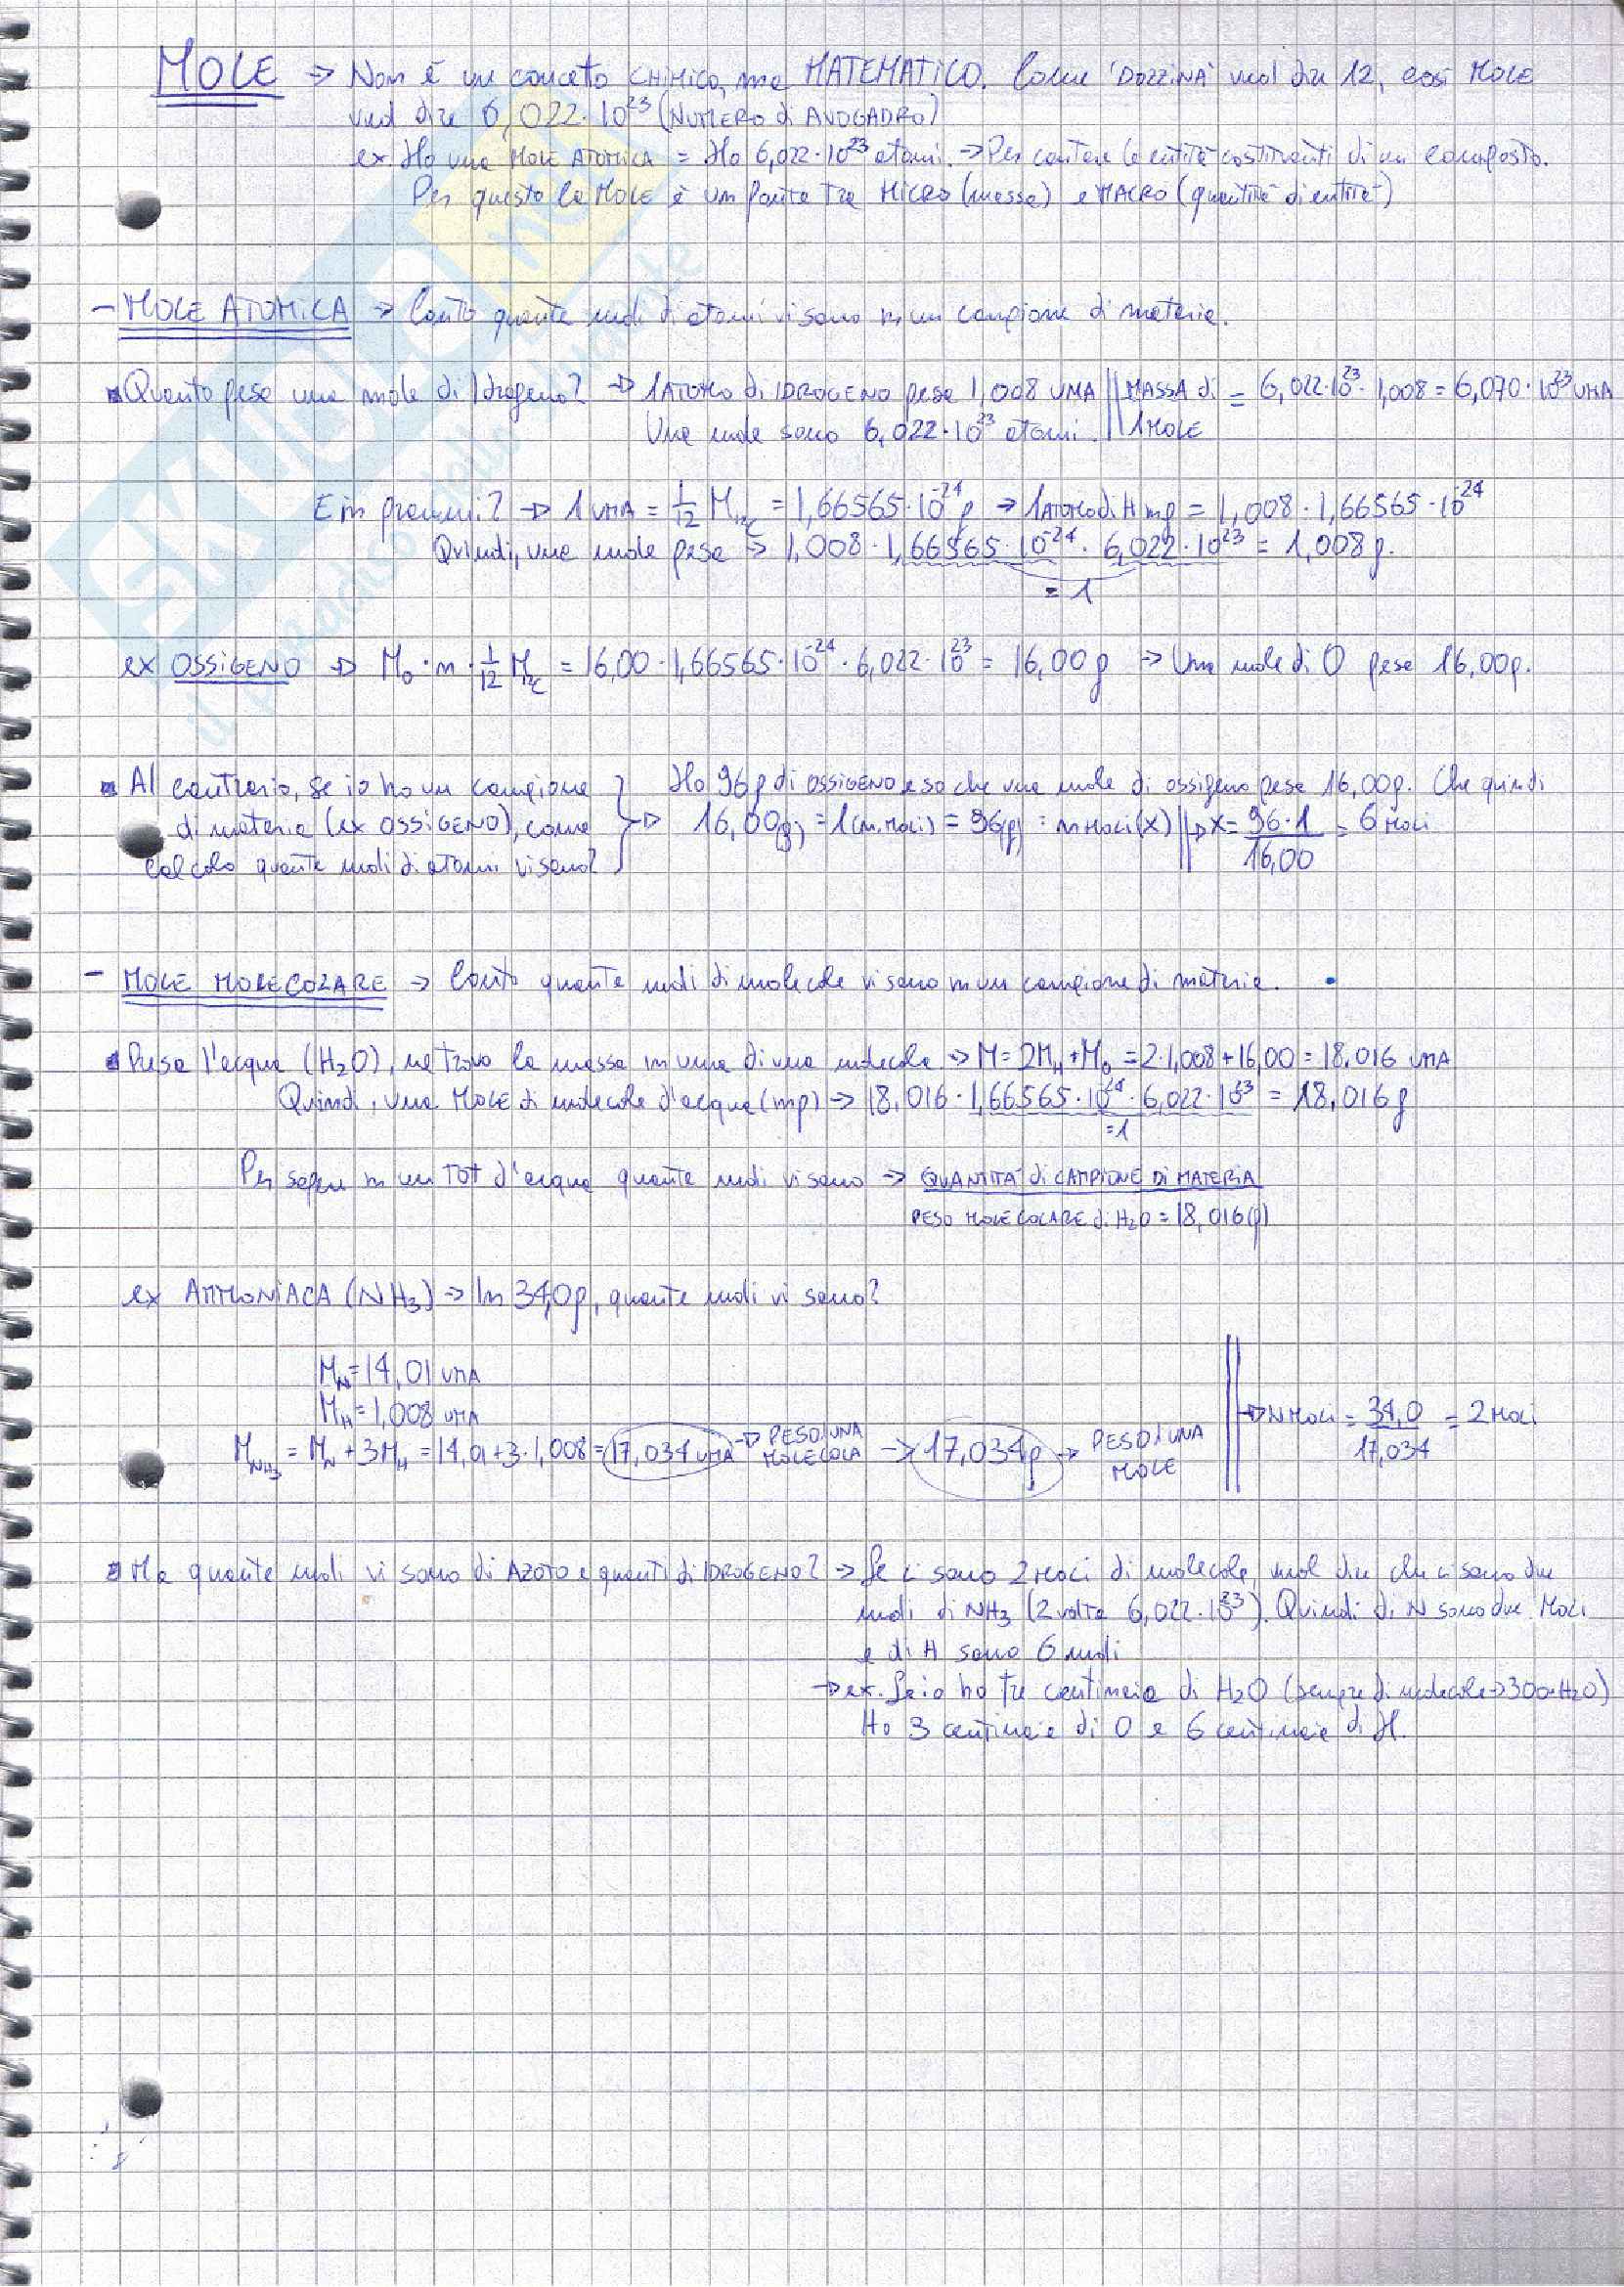 MOLE → Non è un concetto CHIMICO, ma MATEMATICO. Come 'DOZZINA' vuol dire 12, così MOLE
vuol dire 6,022·10²³ (NUMERO di AVOGADRO)
ex Ho una MOLE ATOMICA = Ho 6,022·10²³ atomi. → Per contare le entità costituenti di un composto.
Per questo la MOLE è un ponte tra MICRO (massa) e MACRO (quantità di entità)
- MOLE ATOMICA → Conto quante moli di atomi vi sono in un campione di materia.
▪ Quanto pesa una mole di Idrogeno? → 1 ATOMO di IDROGENO pesa 1,008 UMA || MASSA di 1 MOLE = 6,022·10²³·1,008 = 6,070·10²³ UMA
Una mole sono 6,022·10²³ atomi.
E in grammi? → 1 UMA = 1/12 M₁₂C = 1,66565·10⁻²⁴ g → 1 ATOMO di H in g = 1,008·1,66565·10⁻²⁴
Quindi, una mole pesa → 1,008·1,66565·10⁻²⁴·6,022·10²³ = 1,008 g.
= 1
ex OSSIGENO → M₀·n·1/12 M₁₂C = 16,00·1,66565·10⁻²⁴·6,022·10²³ = 16,00 g → Una mole di O pesa 16,00 g.
▪ Al contrario, se io ho un campione
di materia (ex OSSIGENO), come
calcolo quante moli di atomi vi sono?
} → Ho 96 g di OSSIGENO e so che una mole di ossigeno pesa 16,00 g. Che quindi
16,00(g) = 1 (n. MOLI) = 96(g) : n MOLI (X) || → X = 96·1/16,00 = 6 MOLI
- MOLE MOLECOLARE → Conto quante moli di molecole vi sono in un campione di materia.
▪ Presa l'acqua (H₂O), ne trovo la massa in uma di una molecola → M = 2M_H + M₀ = 2·1,008 + 16,00 = 18,016 UMA
Quindi, una MOLE di molecole d'acqua (in g) → 18,016·1,66565·10⁻²⁴·6,022·10²³ = 18,016 g
= 1
Per sapere in un TOT d'acqua quante moli vi sono → QUANTITÀ di CAMPIONE DI MATERIA
PESO MOLECOLARE di H₂O = 18,016(g)
ex AMMONIACA (NH₃) → In 34,0 g, quante moli vi sono?
M_N = 14,01 UMA
M_H = 1,008 UMA
M_NH₃ = M_N + 3M_H = 14,01 + 3·1,008 = 17,034 UMA → PESO 1 UNA MOLECOLA → 17,034 g → PESO 1 UNA MOLE || → N MOLI = 34,0/17,034 = 2 MOLI
▪ Ma quante moli vi sono di AZOTO e quanti di IDROGENO? → Se ci sono 2 MOLI di molecole, vuol dire che ci sono due
moli di NH₃ (2 volte 6,022·10²³). Quindi di N sono due MOLI
e di H sono 6 moli
→ ex. Se io ho tre centinaia di H₂O (sempre di molecole → 300 H₂O)
Ho 3 centinaia di O e 6 centinaia di H.